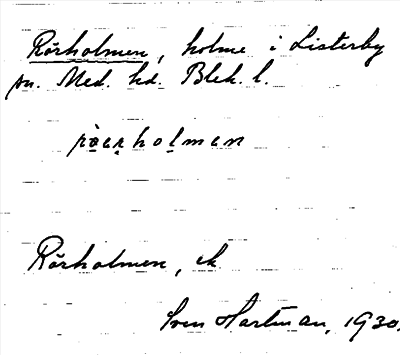 Rörholmen, holme i Listerby
sn. Med. hd. Blek. l.
Rörholmen, ek
Sven Hartman, 1930.